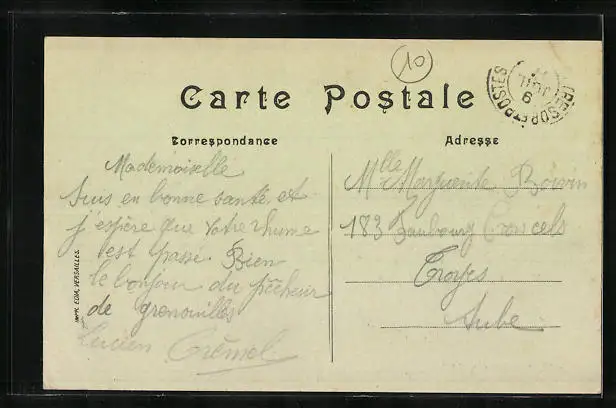 10
Carte Postale
TRESOR ET POSTES
9
JUIL
Correspondance
Adresse
Mademoiselle
Suis en bonne santé et
j'espère que votre rhume
est passé. Bien
le bonjour du pêcheur
de grenouilles
Lucien
Mlle Marguerite Boivin
183 Faubourg Croncels
Troyes
Aube
IMPR. EDIA, VERSAILLES.